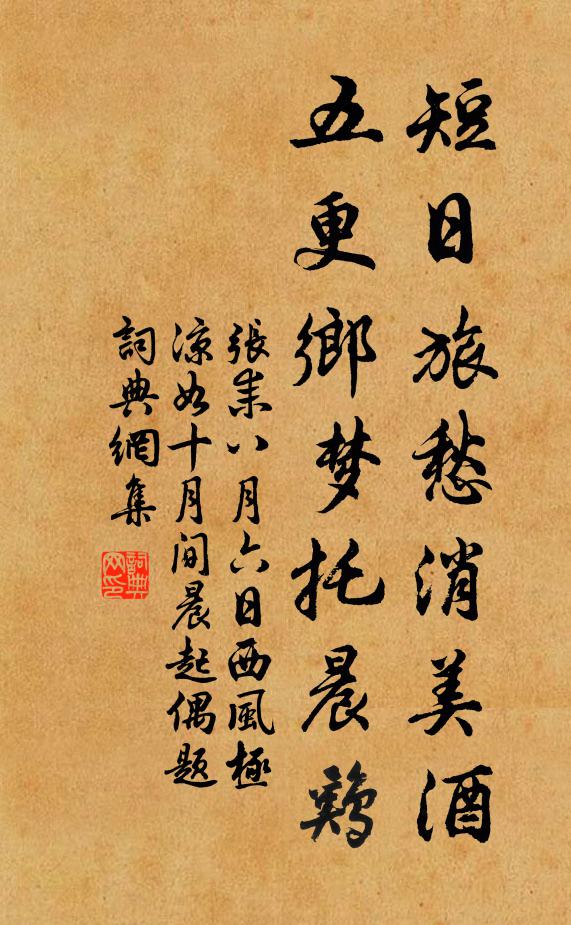 短日旅愁消美酒
五更鄉梦托晨鷄
張耒八月六日西風極
凉如十月間晨起偶题
詞典網集
詞典
网印